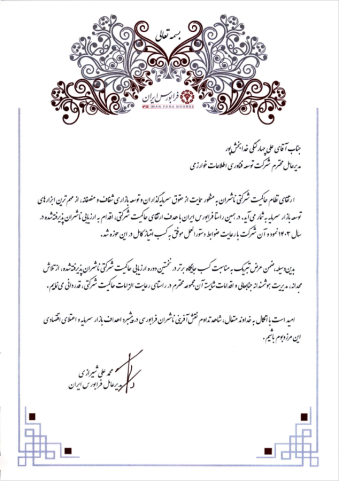 بسمه تعالی
فرابورس ایران
IRAN FARA BOURSE
جناب آقای علی چهارلنگی خدابخش پور
مدیرعامل محترم شرکت توسعه فناوری اطلاعات خوارزمی
ارتقای نظام حاکمیت شرکتی ناشران، به منظور حمایت از حقوق سرمایه‌گذاران و توسعه بازاری شفاف و منصفانه، از مهم ترین ابزارهای
توسعه بازار سرمایه به شمار می آید. در همین راستا فرابورس ایران با هدف ارتقای حاکمیت شرکتی، اقدام به ارزیابی ناشران پذیرفته‌شده در
سال ۱۴۰۲ نمود و آن شرکت با رعایت ضوابط دستورالعمل موفق به کسب امتیاز کامل در این حوزه شد.
بدین‌وسیله ضمن عرض تبریک به مناسبت کسب جایگاه برتر در نخستین دوره ارزیابی حاکمیت شرکتی ناشران پذیرفته‌شده، از تلاش
مجدانه، مدیریت هوشمندانه جنابعالی و اقدامات شایسته آن مجموعه محترم در راستای رعایت الزامات حاکمیت شرکتی، قدردانی می نمایم.
امید است با اتکال به خداوند متعال، شاهد تداوم نقش‌آفرینی ناشران فرابورسی در پیشبرد اهداف بازار سرمایه و اعتلای اقتصادی
این مرز و بوم باشیم.
محمد علی شیرازی
مدیرعامل فرابورس ایران